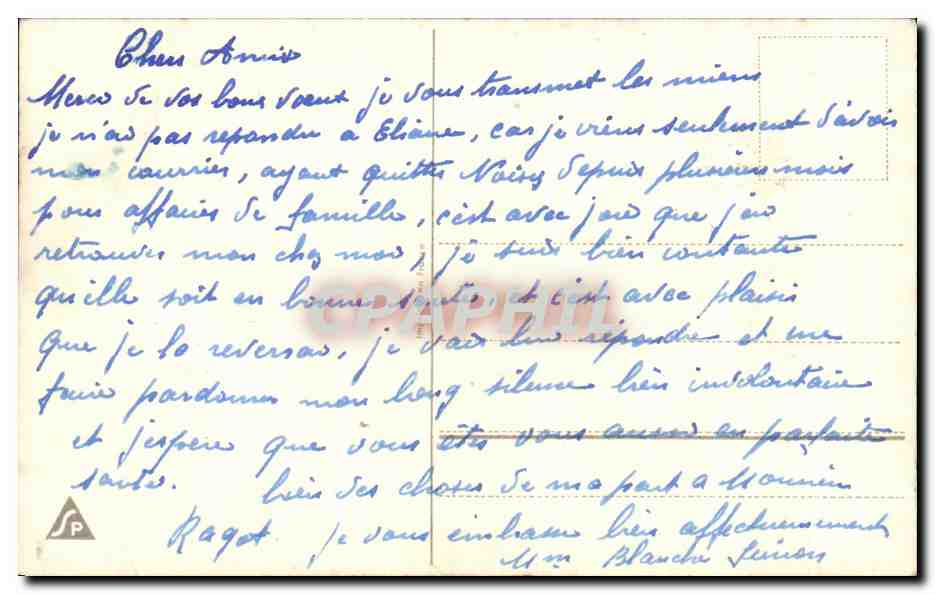 Chers Amis
Merci de vos bons voeux je vous transmet les miens
je n'ai pas repondu a Eliane, car je viens seulement d'avoir
mon courrier, ayant quitter Noisy depuis plusieurs mois
pour affaires de famille, c'est avec joie que j'ai
retrouver mon chez moi, je suis bien contante
qu'elle soit en bonne santé, et c'est avec plaisir
que je la reverrai, je vais lui répondre et me
faire pardonner mon long silence bien involontaire
et j'espère que vous êtes vous aussi en parfaite
santé. bien des choses de ma part a Monsieur
Ragot. je vous embrasse bien affectueusement
Mme Blanche
CPAPHIL
SP